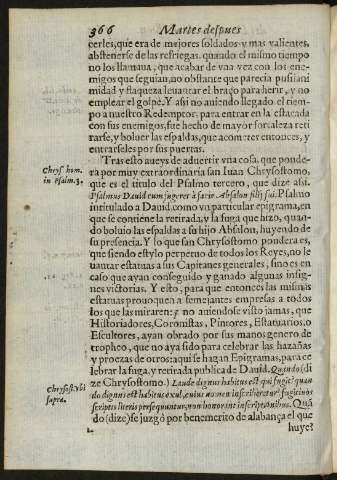 366 Martes despues
cerles, que era de mejores soldados y mas valientes,
abstenerse de las refriegas, quando el mismo tiempo
no los llamaua, que acabar de vna vez con los ene-
migos que seguian, no obstante que parecia pusilani
midad y flaqueza leuantar el braço para herir, y no
emplear el golpe. Y asi no auiendo llegado el tiem-
po a nuestro Redemptor, para entrar en la estacada
con sus enemigos, fue hecho de mayor fortaleza reti
rarse, y boluer las espaldas, que acometer entonces, y
entrarseles por sus puertas.
Tras esto aueys de aduertir vna cosa, que ponde-
ra por muy extraordinaria san Iuan Chrysostomo,
Chrys. hom.
in Psalm. 3.
que es el titulo del Psalmo tercero, que dize asi.
Psalmus Dauid cum fugeret à facie Absalon filij sui. Psalmo
intitulado a Dauid, como vn particular epigrama, en
que se contiene la retirada, y la fuga que hizo, quan-
do boluio las espaldas a su hijo Absalon, huyendo de
su presencia. Y lo que san Chrysostomo pondera es,
que siendo estylo perpetuo de todos los Reyes, no le
uantar estatuas a sus Capitanes generales, sino es en
caso que ayan conseguido y ganado algunas insig-
nes victorias. Y esto, para que entonces las mismas
estatuas prouoquen a semejantes empresas a todos
los que las miraren: y no auiendose visto jamas, que
Historiadores, Coronistas, Pintores, Estatuarios, o
Escultores, ayan obrado por sus manos genero de
tropheo, que no aya sido para celebrar las hazañas
y proezas de otros: aqui se hagan Epigramas, para ce
lebrar la fuga, y retirada publica de Dauid. Quando (di
Chrysost. vbi
supra.
ze Chrysostomo.) Laude dignus habitus est qui fugit? quan
do dignus est habitus exul, cuius nomen inscriberetur? fugitiuos
scriptis literis persequuntur, non honorant inscriptionibus. Quā
do (dize) se juzgò por benemerito de alabança el que
huye?